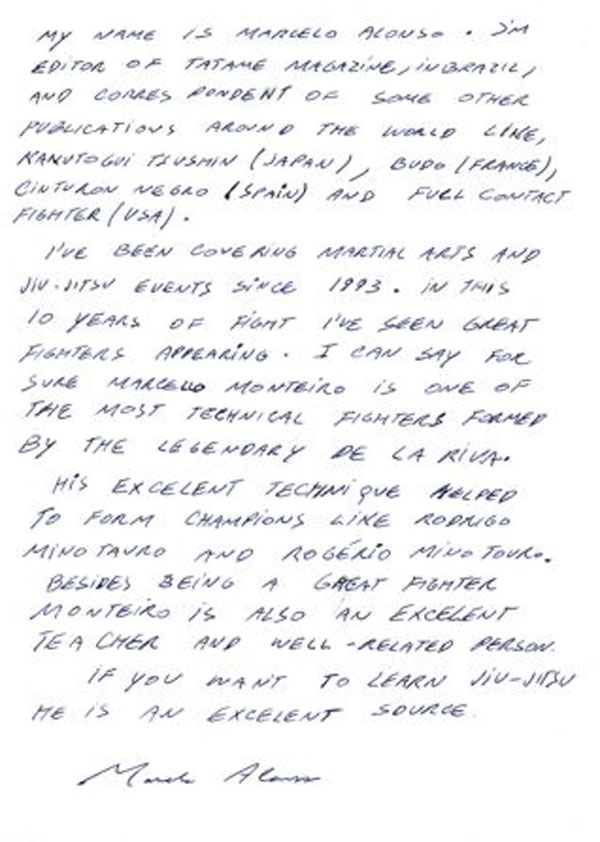 MY NAME IS MARCELO ALONSO. I'M
EDITOR OF TATAME MAGAZINE, IN BRAZIL,
AND CORRESPONDENT OF SOME OTHER
PUBLICATIONS AROUND THE WORLD LIKE,
KAKUTOGUI TSUSHIN (JAPAN), BUDO (FRANCE),
CINTURON NEGRO (SPAIN) AND FULL CONTACT
FIGHTER (USA).
I'VE BEEN COVERING MARTIAL ARTS AND
JIU-JITSU EVENTS SINCE 1993. IN THIS
10 YEARS OF FIGHT I'VE SEEN GREAT
FIGHTERS APPEARING. I CAN SAY FOR
SURE MARCELLO MONTEIRO IS ONE OF
THE MOST TECHNICAL FIGHTERS FORMED
BY THE LEGENDARY DE LA RIVA.
HIS EXCELENT TECHNIQUE HELPED
TO FORM CHAMPIONS LIKE RODRIGO
MINOTAURO AND ROGÉRIO MINOTOURO.
BESIDES BEING A GREAT FIGHTER
MONTEIRO IS ALSO AN EXCELENT
TEACHER AND WELL-RELATED PERSON.
IF YOU WANT TO LEARN JIU-JITSU
HE IS AN EXCELENT SOURCE.
Marcelo Alonso